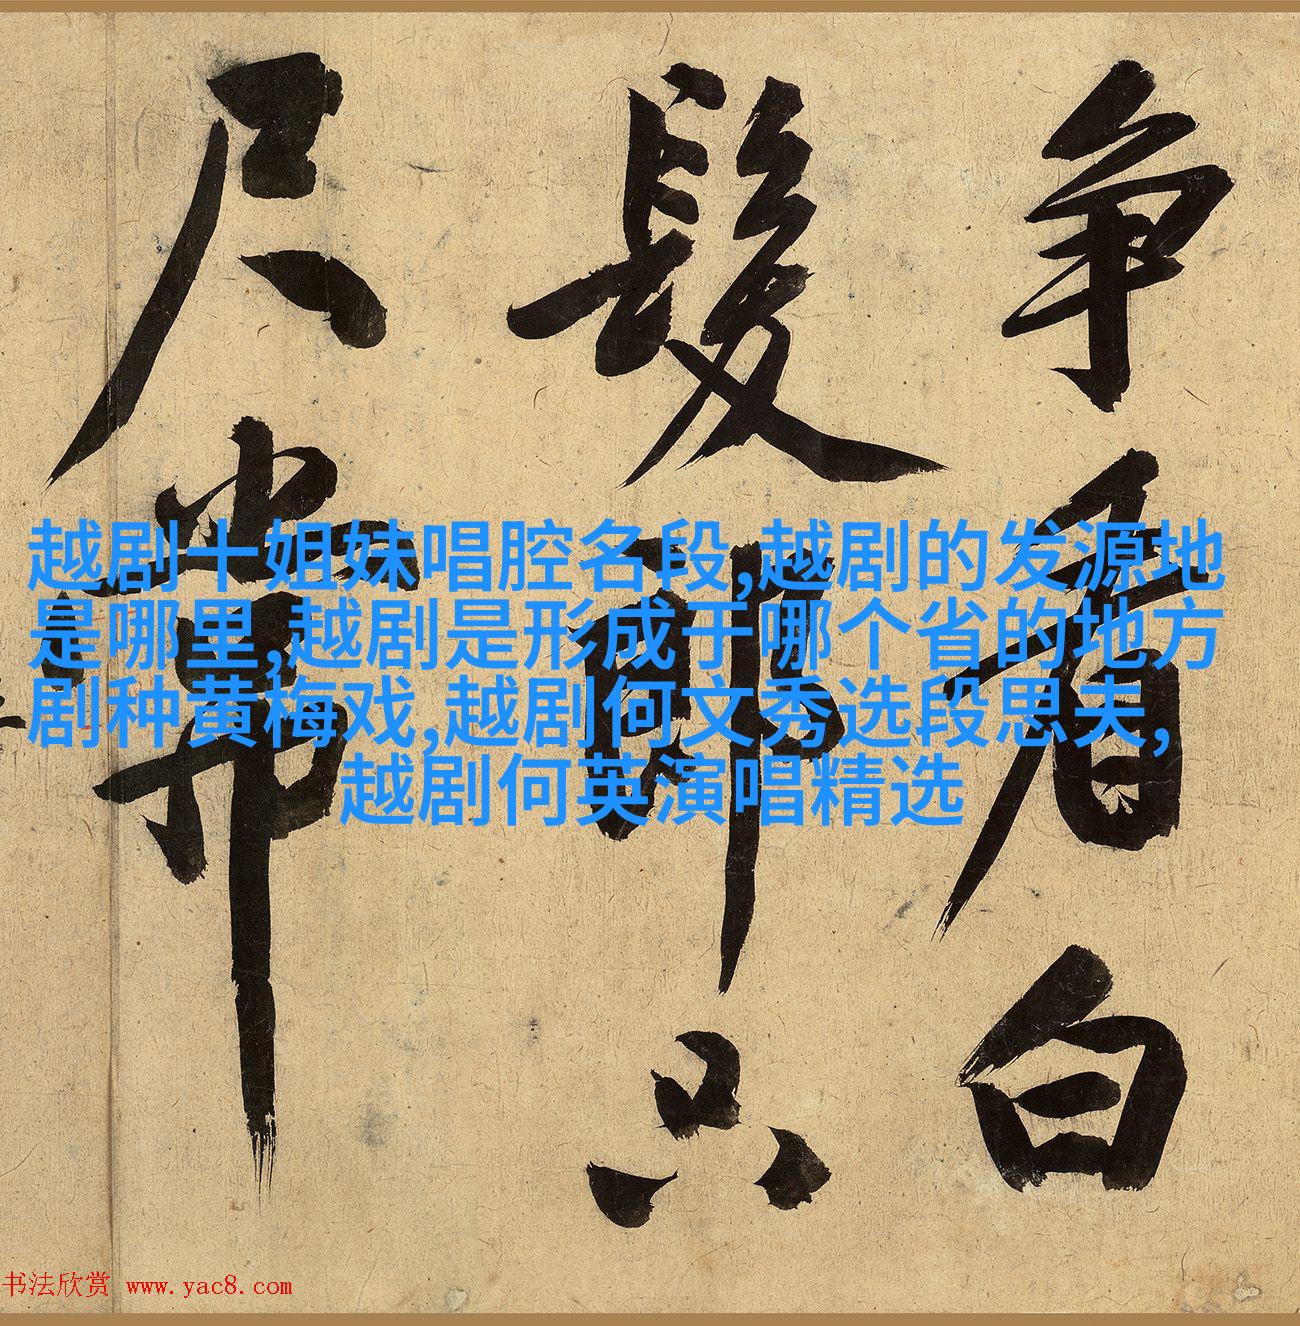 争看白
髮郎只
尺常
越剧十姐妹唱腔名段,越剧的发源地
是哪里,越剧是形成于哪个省的地方
剧种黄梅戏,越剧何文秀选段思夫,
越剧何英演唱精选
书法欣赏 www.yac8.com